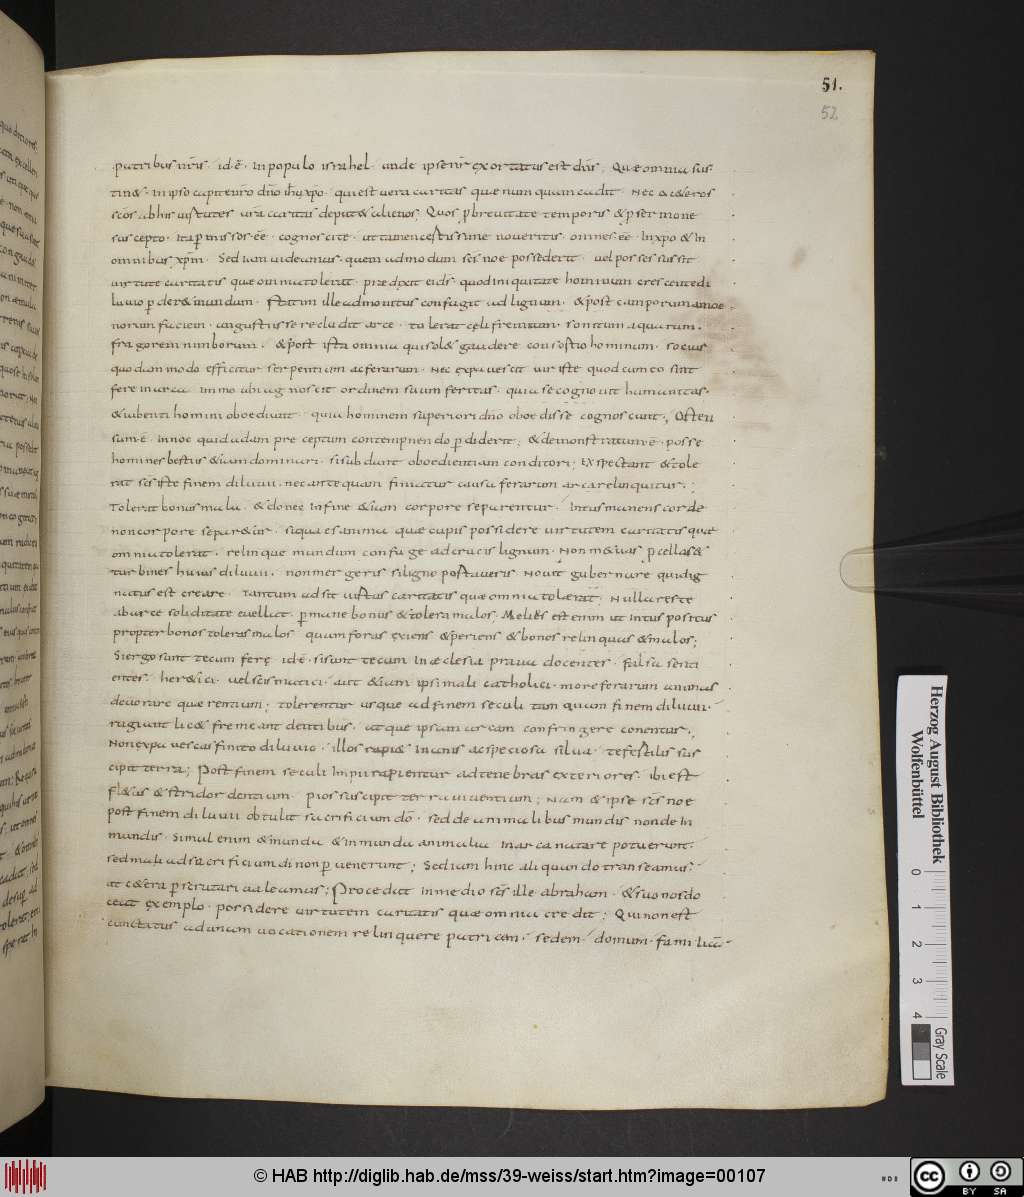 51.
52
patribus nr̄is · id·ē · in populo israhel · unde ipse nr̄ exortatus est dn̄s; Quae omnia sus
tin& · in ipso capite nr̄o dn̄o ihu xpo · qui est uera caritas quae numquam cadit · Nec
scōs ab his uirtutes ura caritas deput& alienos; Quos p breuitate temporis & p sermone
suscepto · ita pmissos · ēē · cognoscite · ut tamen certissime noueritis · omnes · ēē · in xpo & in
omnibus xpm̄ · Sed iam uideamus · quemadmodum scs noe possederit · uel possessus sit
uirtute caritatis quae omnia tolerat · praedixit ei ds · quod iniquitate hominum crescente di
luuio perder& mundum · statim ille admonitus confugit ad lignum · & post camporum amoe
norum faciem · angustiis se recludit arce · tolerat celi fremitum · sonitum aquarum ·
fragorem nimborum · & post ista omnia qui sol& gaudere consortio hominum · socius
quodam modo efficitur serpentium ac ferarum · Nec expauescit uir iste quod cum eo sint
fere in arca · immo ubi agnoscit ordinem suum feritas · quia se cognouit humanitas ·
& iubenti homini oboediunt · quia hominem superiori dn̄o oboedisse cognoscunt; Osten
sum · ē · in noe quid adam preceptum contempnendo pdiderit; & demonstratum · ē · posse
homines bestiis & iam dominari · si subdant oboedientiam conditori; Exspectant & tole
rat scs iste finem diluuii · nec antequam finiatur causa ferarum arca relinquitur ·
Tolerat bonus mala · & donec in fine &iam corpore separentur · Intus manens corde
non corpore separ&ur · siqua es anima quae cupis possidere uirtutem caritatis quae
omnia tolerat · relinque mundum confuge ad crucis lignum · Non m&uas pcellas &
turbines huius diluuii · non mergeris si ligno post aueris Nouit gubernare qui dig
natus est creare · Tantum adsit uirtus caritatis quae omnia tolerat · Nulla res te
ab arce soliditate euellat · pmane bonus & tolera malos · Melius est enim ut intus positus
propter bonos toleras malos · quam foras exiens & periens & bonos relinquas & malos;
Si ergo sunt tecum ferę · id·ē · si sunt tecum in aeclesia praua docentes · falsa senti
entes · her&ici · uel scismatici · aut &iam ipsi mali catholici · more ferarum animas
deuorare quaerentium · tolerentur usque ad finem seculi tamquam finem diluuii ·
rugiant lic& fremeant dentibus · atque ipsam arcam confringere conentur ·
Non expauescas finito diluuio · illos rapi& inanis ac speciosa silua · te fertilis sus
cipit terra; Post finem seculi impii rapientur ad tenebras exteriores · ibi est
fl&us & stridor dentium · pios suscipit terra uiuentium; Nam & ipse scs noe
post finem diluuii obtulit sacrificium dō · sed de animalibus mundis non de in
mundis · Simul enim & munda & inmunda animalia in arca natare potuerunt ·
sed mala ad sacrificium di non peruenerunt; Sed iam hinc aliquando transeamus ·
ut c&era pscrutari ualeamus; Procedat in medio scs ille abraham · & suo nos do
ceat exemplo · possidere uirtutem caritatis quae omnia credit; Qui non est
cunctatus ad unam uocationem relinquere patriam · sedem · domum · familiā
Herzog August Bibliothek
Wolfenbüttel
0 1 2 3 4
Gray Scale
© HAB http://diglib.hab.de/mss/39-weiss/start.htm?image=00107
cc BY SA